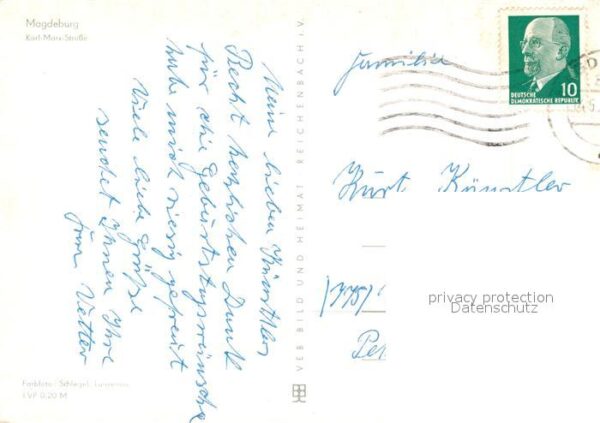 Magdeburg
Karl-Marx-Straße
Meine lieben Künstlers
Recht herzlichen Dank
für die Geburtstagswünsche
habe mich riesig gefreut
Viele liebe Grüße
sendet Ihnen Ihre
Frau Vetter
Farbfoto: Schlegel,
EVP 0,20 M
VEB BILD UND HEIMAT · REICHENBACH i. V.
DEUTSCHE
DEMOKRATISCHE REPUBLIK
10
Familie
Kurt Künstler
privacy protection
Datenschutz